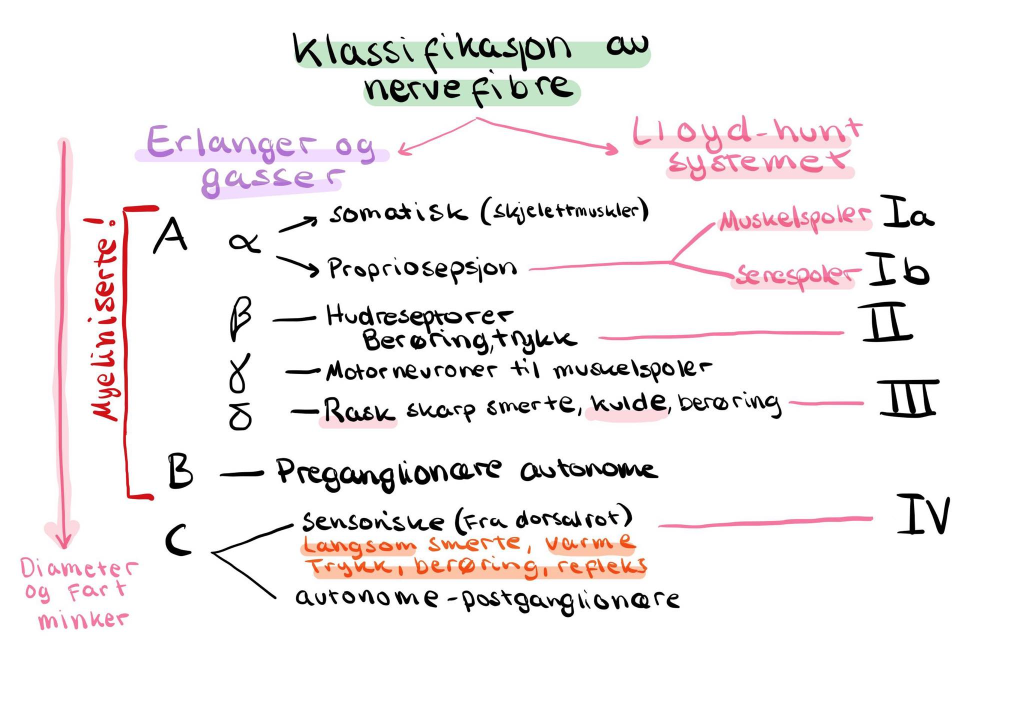 Klassifikasjon av
nervefibre
Erlanger og
gasser
Lloyd-hunt
systemet
Myeliniserte!
A
α
somatisk (skjelettmuskler)
Propriosepsjon
Muskelspoler Ia
Senespoler Ib
β — Hudreseptorer
Berøring, trykk II
γ — Motorneuroner til muskelspoler
δ — Rask skarp smerte, kulde, berøring III
B — Preganglionære autonome
C
sensoriske (Fra dorsalrot) IV
Langsom smerte, varme
Trykk, berøring, refleks
autonome - postganglionære
Diameter
og Fart
minker